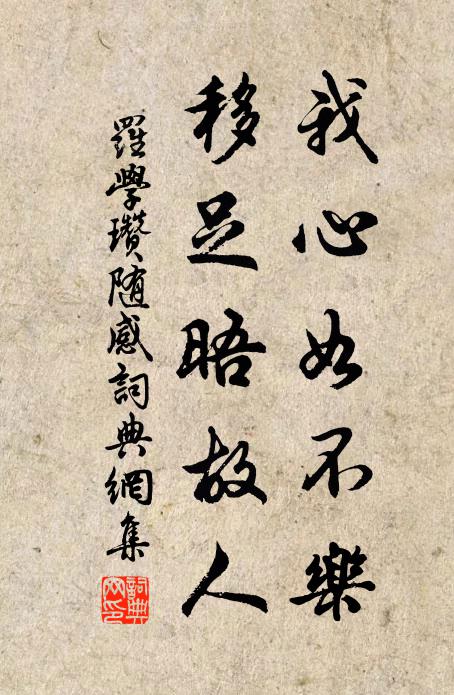 我心如不樂
移足晤故人
羅學瓚随感詞典網集
詞典网印